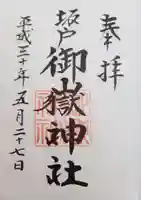 奉拝
坂戸
御嶽神社
平成三十年五月二十七日